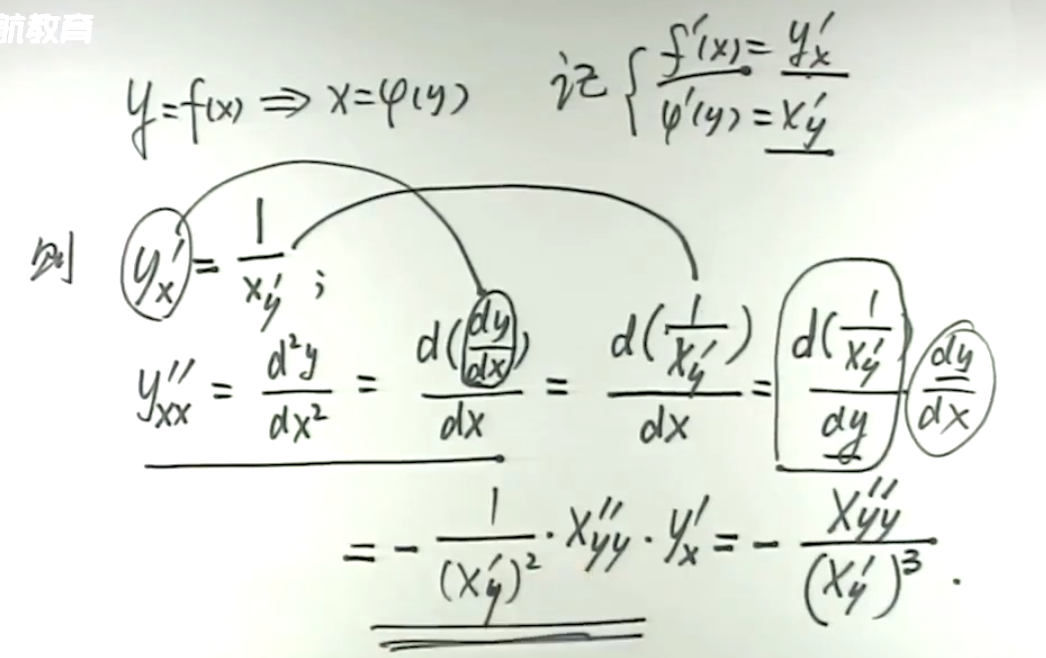 航教育
y=f(x) ⇒ x=φ(y) 记 { f′(x)=y′x
φ′(y)=x′y
则 y′x = 1/x′y ;
y″xx = d²y/dx² = d(dy/dx)/dx = d(1/x′y)/dx = d(1/x′y)/dy · dy/dx
= - 1/(x′y)² · x″yy · y′x = - x″yy/(x′y)³ .